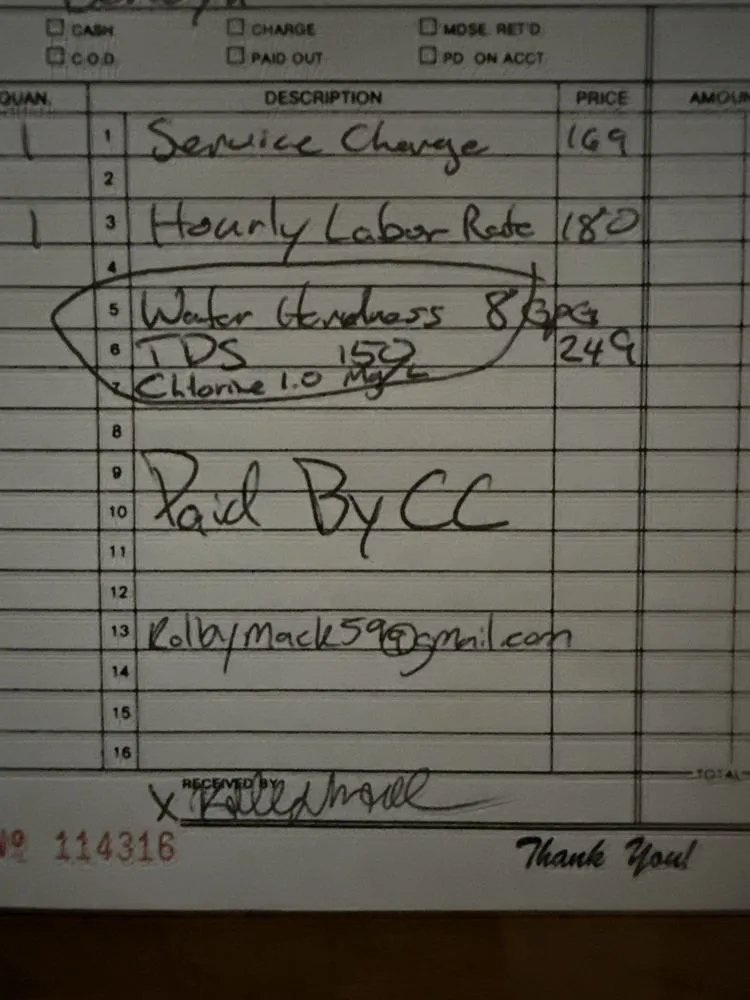 CASH CHARGE MDSE. RET'D.
C.O.D. PAID OUT PD. ON ACCT.
QUAN. DESCRIPTION PRICE AMOUN
1 1 Service Charge 169
2
1 3 Hourly Labor Rate 180
4
5 Water Hardness 8 GPG
6 TDS 150 249
7 Chlorine 1.0 Mg/L
8
9 Paid By CC
10
11
12
13 Kolbymack59@gmail.com
14
15
16
TOTAL
RECEIVED BY
X
№ 114316
Thank You!